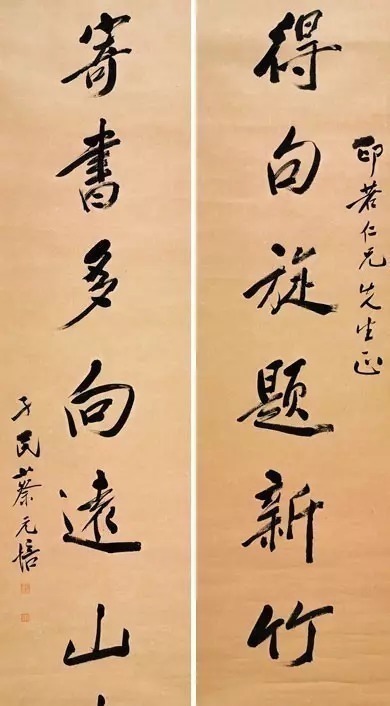 印若仁兄先生正
得句旋題新竹
寄書多向遠山
孑民蔡元培